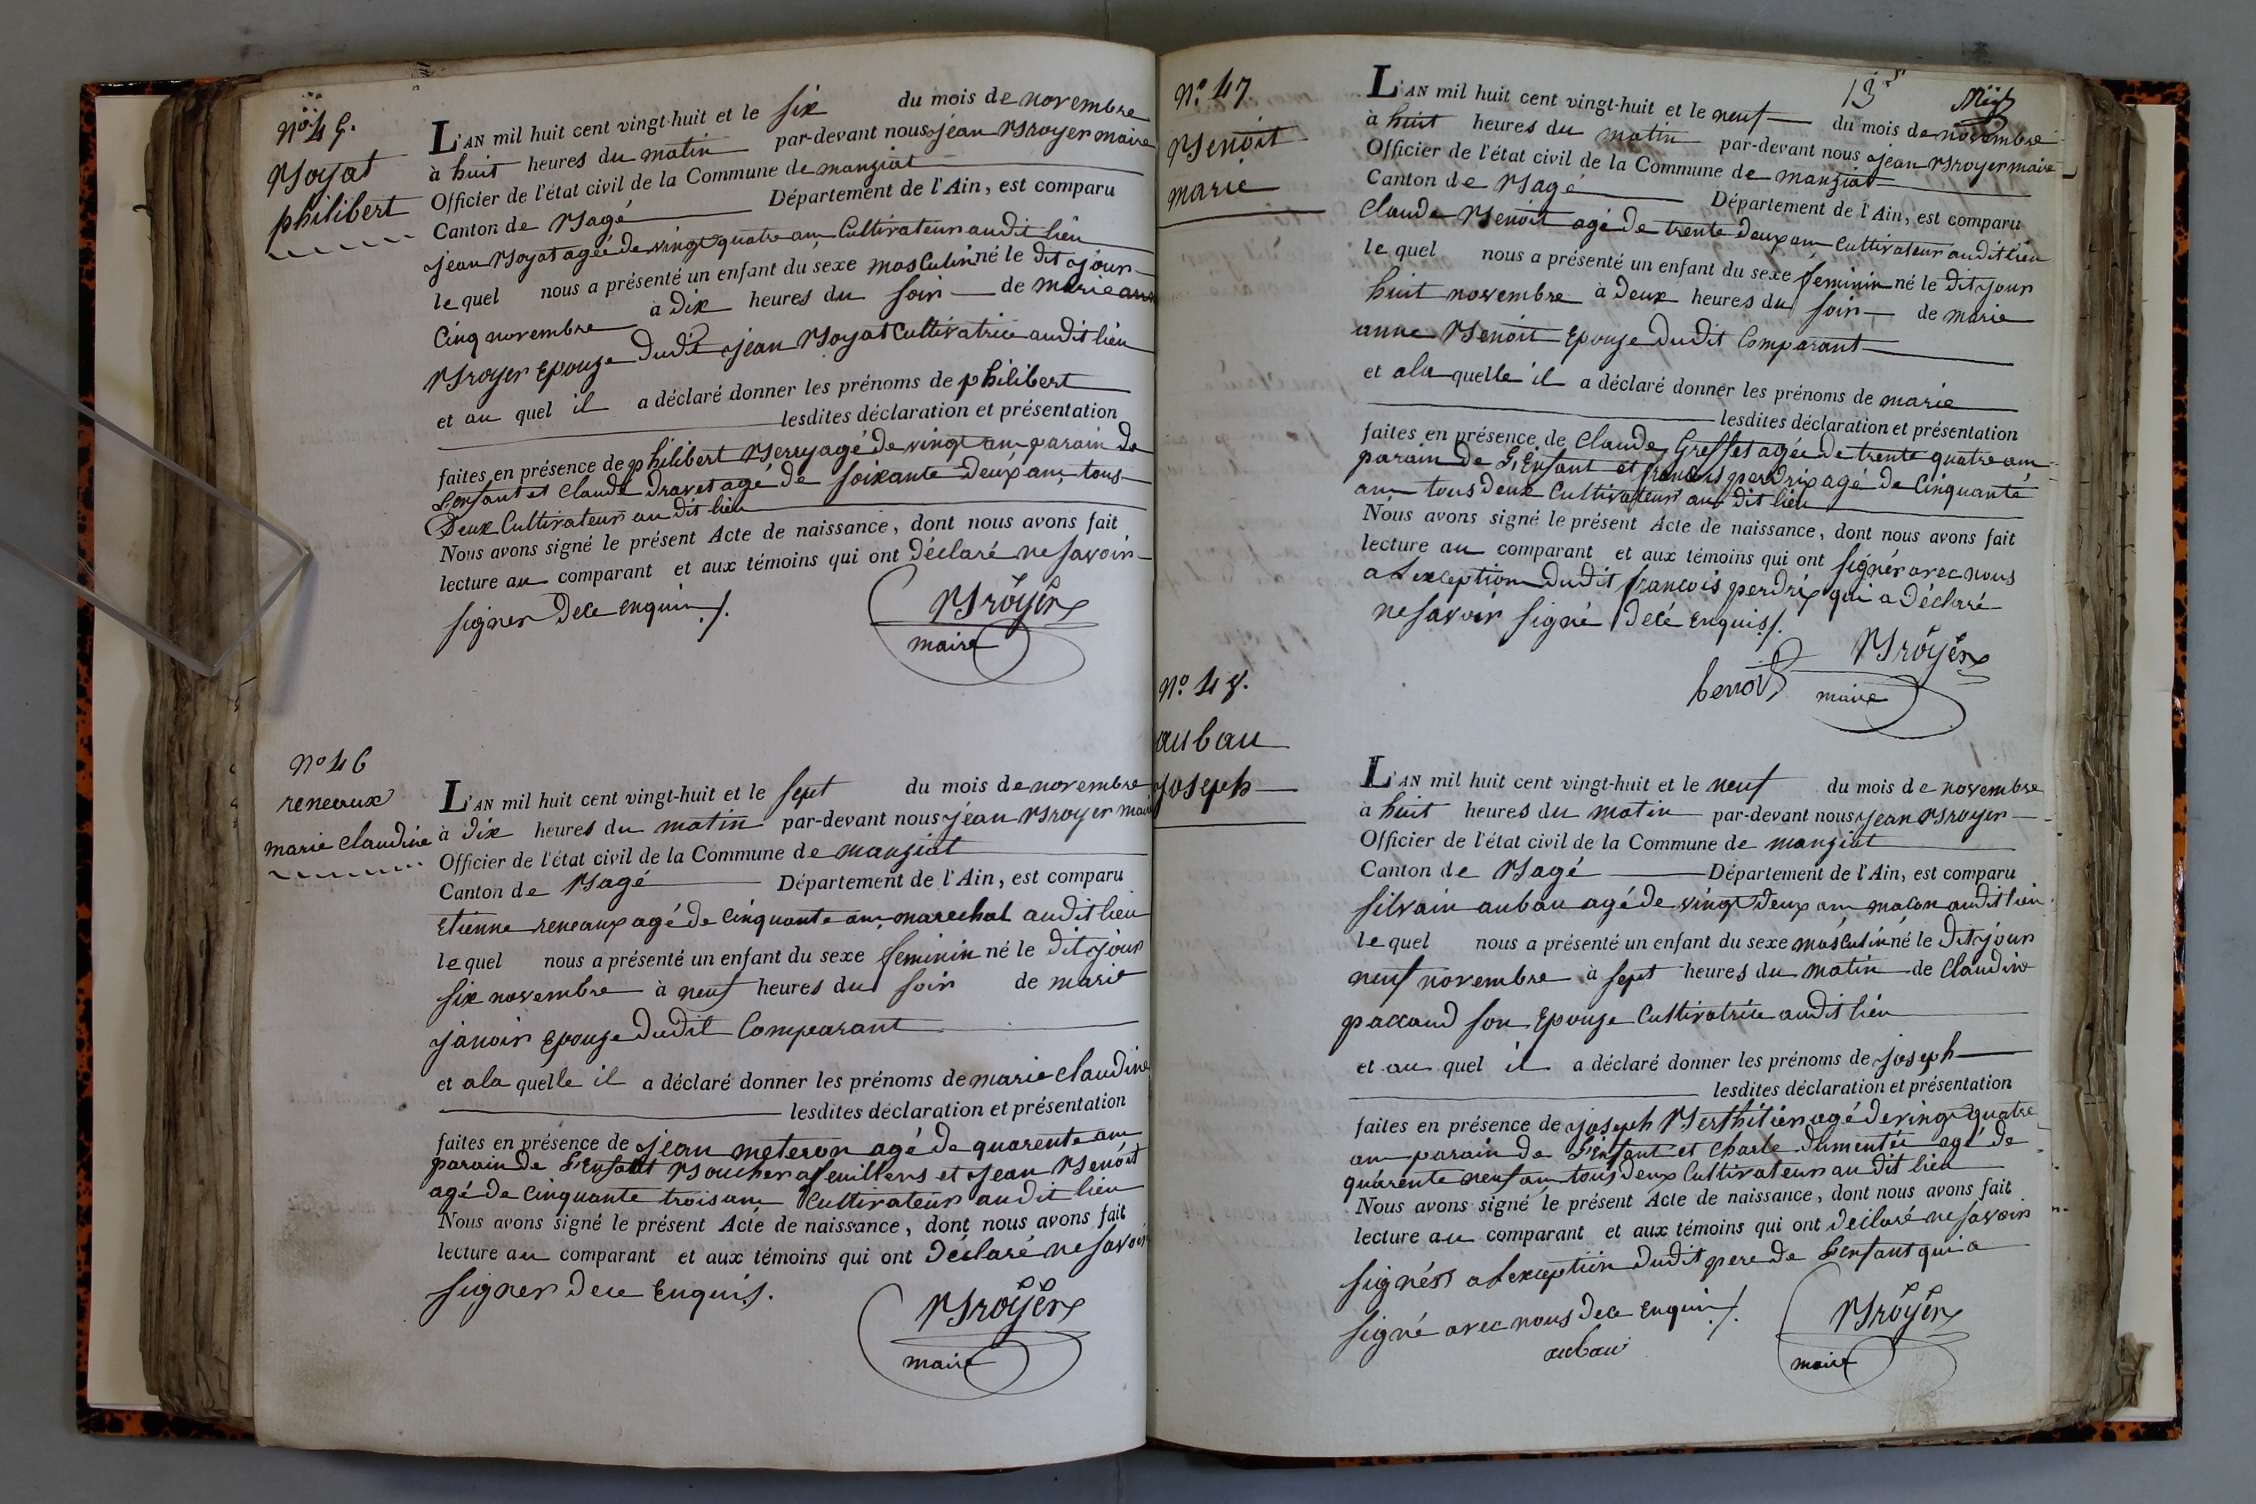 N.º 45.
Boyat
philibert
L'AN mil huit cent vingt-huit et le six du mois de novembre
à huit heures du matin par-devant nous jean Broyer maire
Officier de l'état civil de la Commune de manziat
Canton de Bagé Département de l'Ain, est comparu
jean Boyat agée de vingt quatre ans Cultivateur audit lieu
le quel nous a présenté un enfant du sexe masculin né le dit jour
Cinq novembre à dix heures du soir de marie anne
Broyer Epouse dudit jean Boyat Cultivatrice audit lieu
et au quel il a déclaré donner les prénoms de philibert
lesdites déclaration et présentation
faites en présence de philibert Beruy agé de vingt ans parain de
L'enfant et Claude dravet agé de soixante deux ans tous
Deux Cultivateurs au dit lieu
Nous avons signé le présent Acte de naissance, dont nous avons fait
lecture au comparant et aux témoins qui ont Déclaré ne savoir
signer De ce enquis ./.
Broyer
maire
N.º 46
reneaux
marie Claudine
L'AN mil huit cent vingt-huit et le sept du mois de novembre
à dix heures du matin par-devant nous jean Broyer maire
Officier de l'état civil de la Commune de manziat
Canton de Bagé Département de l'Ain, est comparu
Etienne reneaux agé de Cinquante ans marechal audit lieu
le quel nous a présenté un enfant du sexe feminin né le dit jour
six novembre à neuf heures du soir de marie
janoir Epouse dudit Comparant
et a la quelle il a déclaré donner les prénoms de marie Claudine
lesdites déclaration et présentation
faites en présence de jean meteron agé de quarente ans
parain de L'Enfant Boucher a feuillens et jean Benoit
agé de Cinquante trois ans Cultivateur audit lieu
Nous avons signé le présent Acte de naissance, dont nous avons fait
lecture au comparant et aux témoins qui ont Déclaré ne savoir
signer De ce Enquis ./.
Broyer
maire
13
N.º 47.
Benoit
marie
L'AN mil huit cent vingt-huit et le neuf du mois de novembre
à huit heures du matin par-devant nous jean Broyer maire
Officier de l'état civil de la Commune de manziat
Canton de Bagé Département de l'Ain, est comparu
Claude Benoit agé de trente deux ans Cultivateur audit lieu
le quel nous a présenté un enfant du sexe feminin né le dit jour
huit novembre à deux heures du soir de marie
anne Benoit Epouse dudit Comparant
et a la quelle il a déclaré donner les prénoms de marie
lesdites déclaration et présentation
faites en présence de Claude Greffet agée de trente quatre ans
parain de L'Enfant et francois perdrix agé de Cinquante
ans tous deux Cultivateurs au dit lieu
Nous avons signé le présent Acte de naissance, dont nous avons fait
lecture au comparant et aux témoins qui ont signér avec nous
a L'exception dudit francois perdrix qui a déclaré
ne savoir signé de cé Enquis ./.
Broyer
benoit
maire
N.º 48.
aubau
joseph
L'AN mil huit cent vingt-huit et le neuf du mois de novembre
à huit heures du matin par-devant nous jean Broyer
Officier de l'état civil de la Commune de manziat
Canton de Bagé Département de l'Ain, est comparu
silvain aubau agé de vingt deux ans macon audit lieu
le quel nous a présenté un enfant du sexe masculin né le dit jour
neuf novembre à sept heures du matin de Claudine
paccaud son Epouse Cultivatrice audit lieu
et au quel il a déclaré donner les prénoms de joseph
lesdites déclaration et présentation
faites en présence de joseph Berthilier agé de vingt quatre
ans parain de L'Enfant et Charle dumentée agé de
quarente neuf ans tous deux Cultivateurs au dit lieu
Nous avons signé le présent Acte de naissance, dont nous avons fait
lecture au comparant et aux témoins qui ont declaré ne savoir
signérs a L'exception dudit pere de L'enfant qui a
signé avec nous de ce Enquis ./.
aubau
Broyer
maire